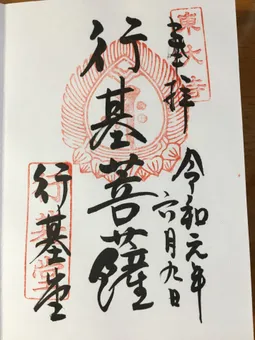 奉拝
東大寺
令和元年
六月九日
行基菩薩
行基堂